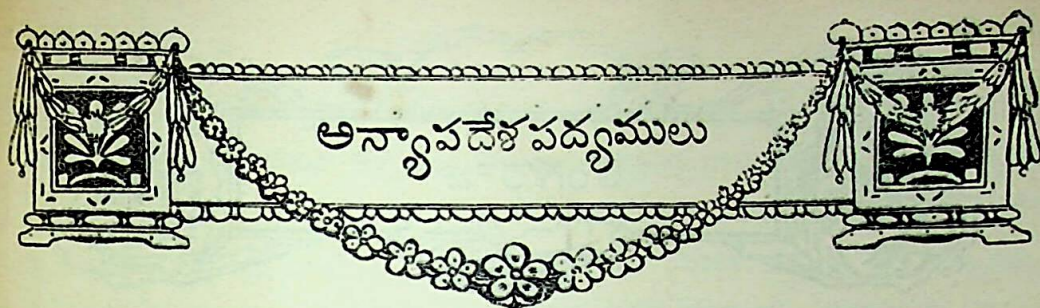 అన్యాపదేశపద్యములు